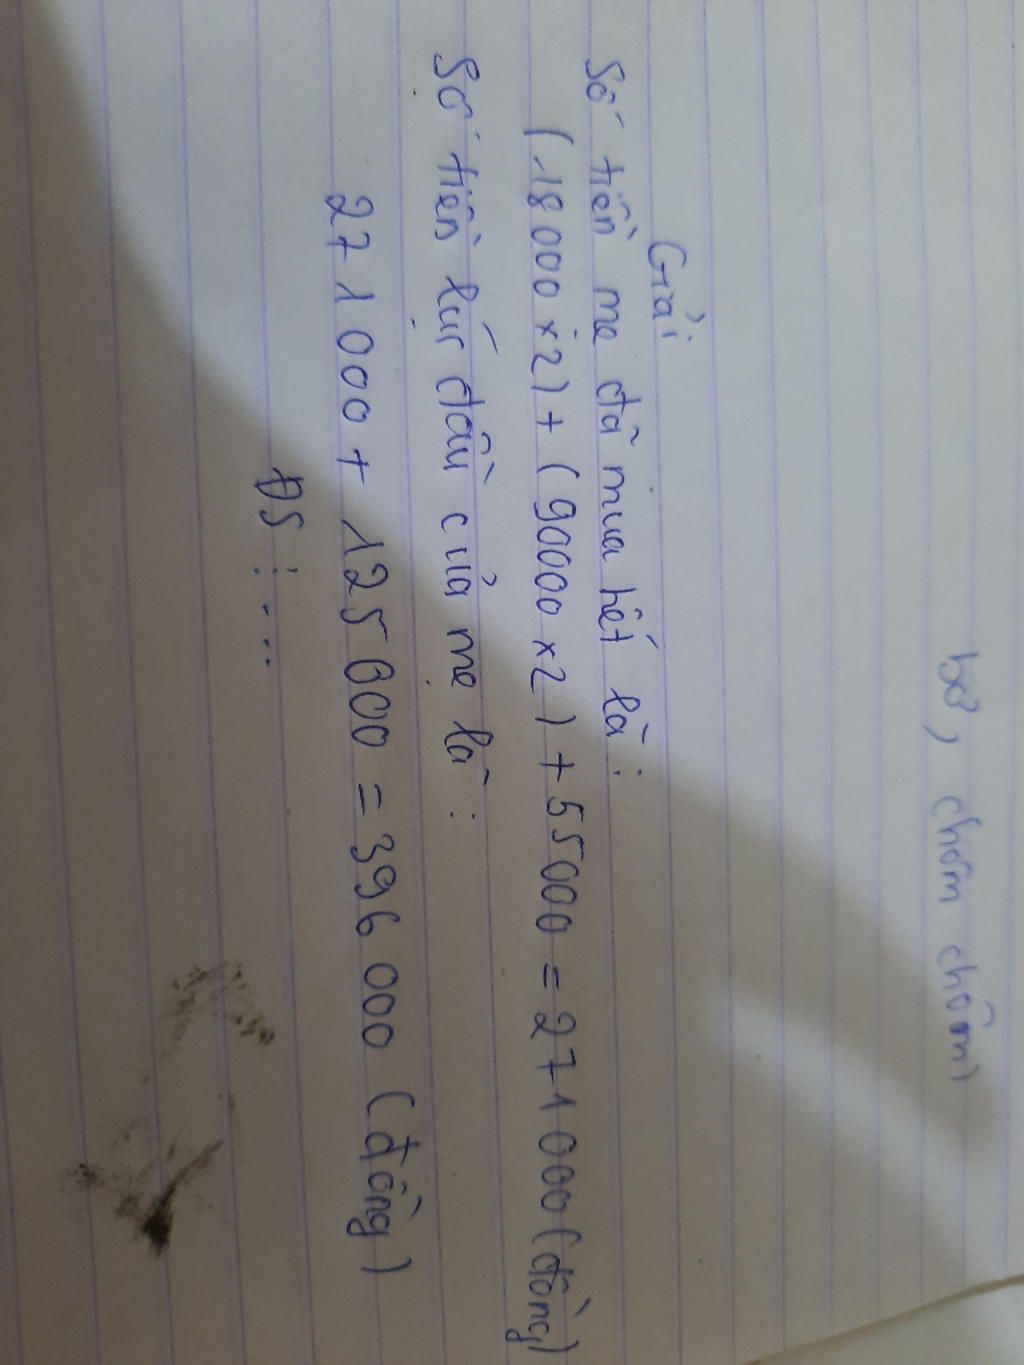 bơ, chôm chôm)
Giải
Số tiền mẹ đã mua hết là:
(18000 x 2) + (90000 x 2) + 55000 = 271000 (đồng)
Số tiền lúc đầu của mẹ là:
271000 + 125000 = 396000 (đồng)
ĐS: ...